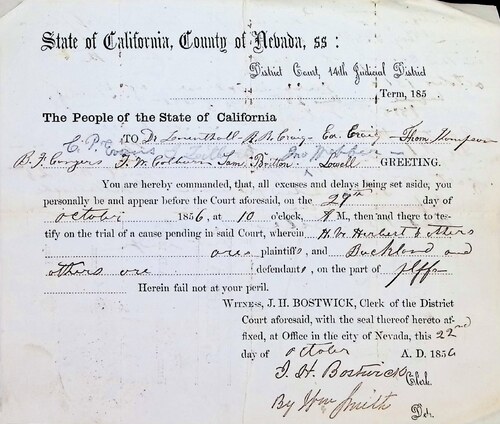 State of California, County of Nevada, ss:
District Court, 14th Judicial District
Term, 185
The People of the State of California
C. P.
TO Dr Lowenthall - R. B. Craig - Eo. Craig - Thom. Thompson
B. F. Congers F. W. Sam. Britton Jno Lowell GREETING.
You are hereby commanded, that, all excuses and delays being set aside, you
personally be and appear before the Court aforesaid, on the 29th day of
October 1856, at 10 o'clock, A M., then and there to tes-
tify on the trial of a cause pending in said Court, wherein H. W. Herbert & others
are plaintiffs, and Buckland and
others are defendants, on the part of plffs
Herein fail not at your peril.
WITNESS, J. H. BOSTWICK, Clerk of the District
Court aforesaid, with the seal thereof hereto af-
fixed, at Office in the city of Nevada, this 22nd
day of October A. D. 1856
J. H. Bostwick Clerk.
By Wm Smith Dep.